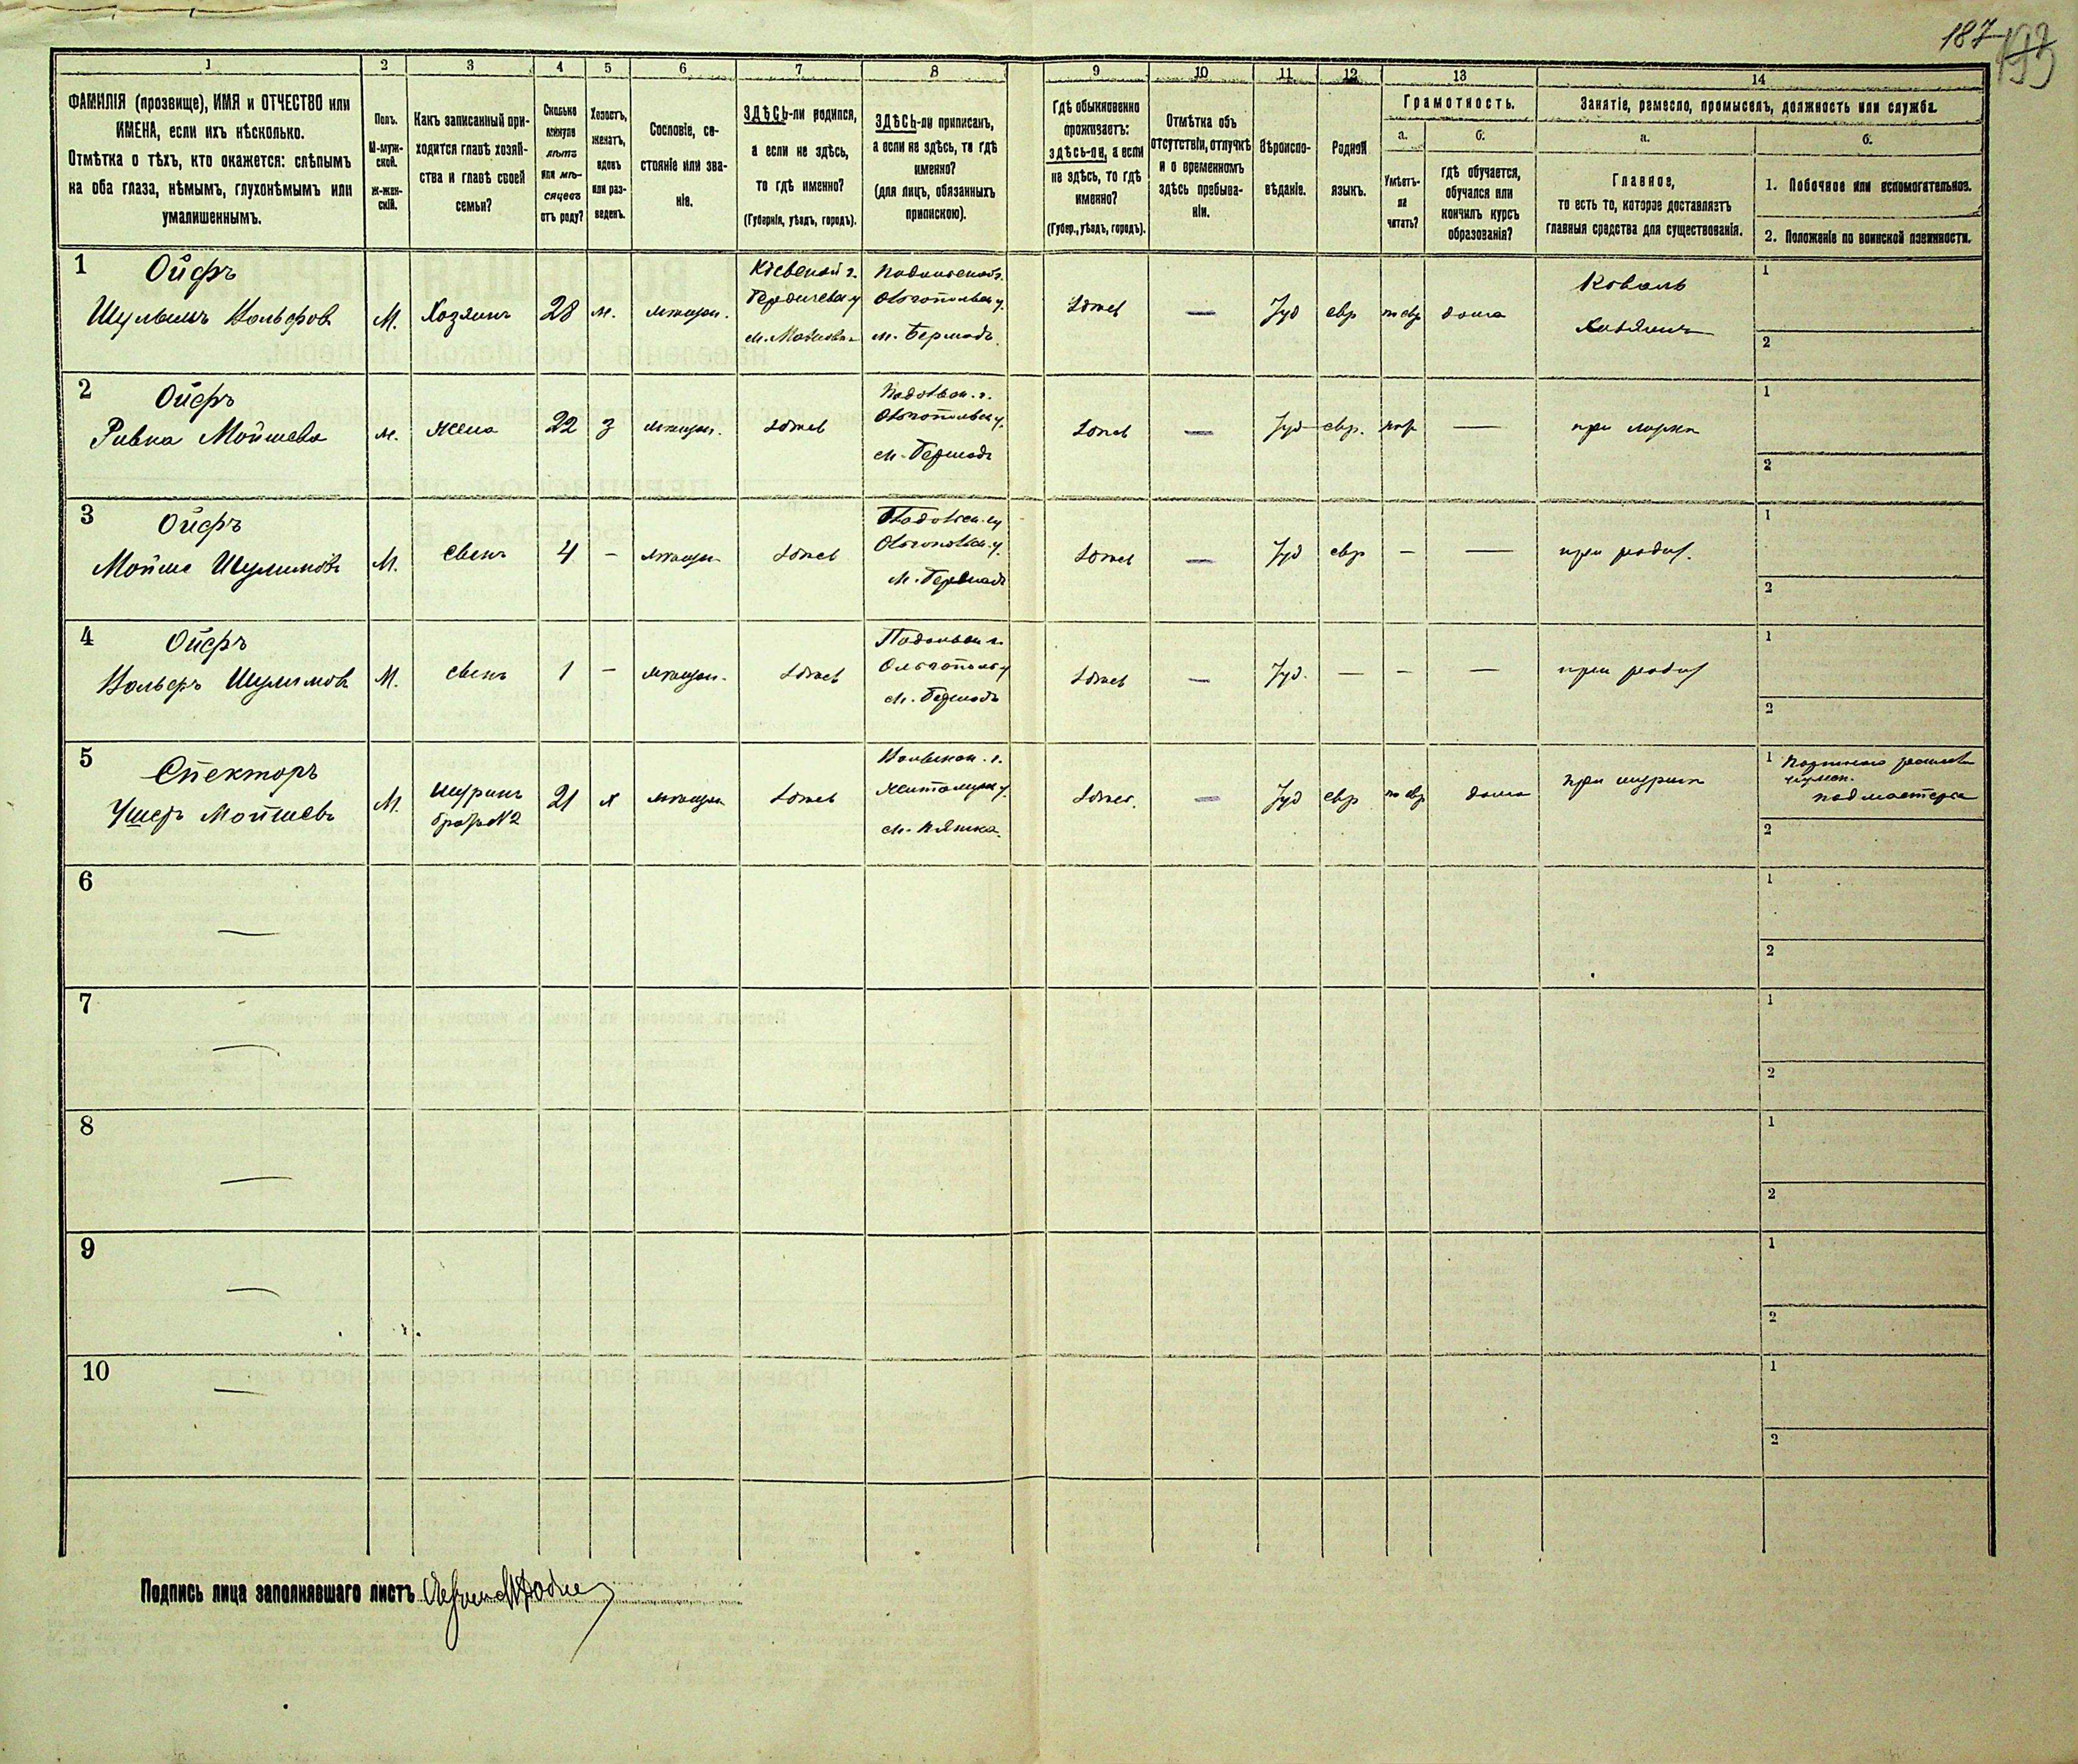 187
193
1 2 3 4 5 6 7 8 9 10 11 12 13 14
ФАМИЛІЯ (прозвище), ИМЯ и ОТЧЕСТВО или
ИМЕНА, если ихъ нѣсколько.
Отмѣтка о тѣхъ, кто окажется: слѣпымъ
на оба глаза, нѣмымъ, глухонѣмымъ или
умалишеннымъ.
Полъ.
М-муж-
ской.
Ж-жен-
скій.
Какъ записанный при-
ходится главѣ хозяй-
ства и главѣ своей
семьи?
Сколько
минуло
лѣтъ
или мѣ-
сяцевъ
отъ роду?
Холостъ,
женатъ,
вдовъ
или раз-
веденъ.
Сословіе, со-
стояніе или зва-
ніе.
ЗДѢСЬ-ли родился,
а если не здѣсь,
то гдѣ именно?
(Губернія, уѣздъ, городъ).
ЗДѢСЬ-ли приписанъ,
а если не здѣсь, то гдѣ
именно?
(для лицъ, обязанныхъ
припискою).
Гдѣ обыкновенно
проживаетъ:
здѣсь-ли, а если
не здѣсь, то гдѣ
именно?
(Губер., уѣздъ, городъ).
Отмѣтка объ
отсутствіи, отлучкѣ
и о временномъ
здѣсь пребыва-
ніи.
Вѣроиспо-
вѣданіе.
Родной
языкъ.
Грамотность.
а.
Умѣетъ-
ли
читать?
б.
гдѣ обучается,
обучался или
кончилъ курсъ
образованія?
Занятіе, ремесло, промыселъ, должность или служба.
а.
Главное,
то есть то, которое доставляетъ
главныя средства для существованія.
б.
1. Побочное или вспомогательное.
2. Положеніе по воинской повинности.
1
Ойфъ
Шулимъ Вольфовъ
М.
Хозяинъ
28
ж.
мѣщан.
Кіевской г.
Бердичевск у
Подольской г.
Ольгопольск у.
м. Бершадь
Здѣсь
—
Іуд
евр
по евр
дома
Коваль
Хозяинъ
1
2
2
Ойфъ
Ривка Мойшева
м.
жена
22
З
мѣщан.
здѣсь
Подольск. г.
Ольгопольск у.
м. Бершадь
Здѣсь
—
Іуд
евр.
—
при мужѣ
1
2
3
Ойфъ
Мойше Шулимовъ
М.
сынъ
4
—
мѣщан
здѣсь
Подольск. г
Ольгопольск. у.
м. Бершадь
Здѣсь
—
Іуд
евр
—
—
при родит.
1
2
4
Ойфъ
Вольфъ Шулимовъ
М.
сынъ
1
—
мѣщан.
здѣсь
Подольск г.
Ольгополь у
м. Бершадь
Здѣсь
—
Іуд.
—
—
—
при родит
1
2
5
Спекторъ
Ушеръ Мойшевъ
М.
шуринъ
братъ №2
21
х
мѣщан
здѣсь
Волынск. г.
Житомірск у.
м. Пятка.
Здѣсь.
—
Іуд
евр
по евр
дома
при шуринѣ
1
подмастерье
2
6
—
1
2
7
—
1
2
8
—
1
2
9
—
1
2
10
—
1
2
Подпись лица заполнявшаго листъ